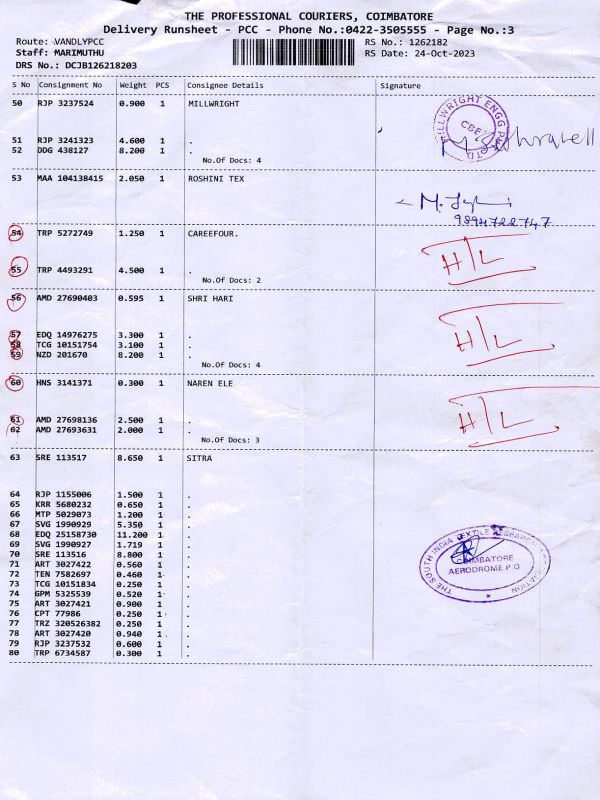 THE PROFESSIONAL COURIERS, COIMBATORE
Delivery Runsheet - PCC - Phone No.:0422-3505555 - Page No.:3
Route: VANDLYPCC RS No.: 1262182
Staff: MARIMUTHU RS Date: 24-Oct-2023
DRS No.: DCJB126218203
S No Consignment No Weight PCS Consignee Details Signature
50 RJP 3237524 0.900 1 MILLWRIGHT
MILLWRIGHT ENGG
CBE
51 RJP 3241323 4.600 1 .
52 DDG 438127 8.200 1 .
No.Of Docs: 4
53 MAA 104138415 2.050 1 ROSHINI TEX
9894722747
54 TRP 5272749 1.250 1 CAREEFOUR.
H/L
55 TRP 4493291 4.500 1 .
No.Of Docs: 2
56 AMD 27690403 0.595 1 SHRI HARI
H/L
57 EDQ 14976275 3.300 1 .
58 TCG 10151754 3.100 1 .
59 NZD 201670 8.200 1 .
No.Of Docs: 4
60 HNS 3141371 0.300 1 NAREN ELE
H/L
61 AMD 27698136 2.500 1 .
62 AMD 27693631 2.000 1 .
No.Of Docs: 3
63 SRE 113517 8.650 1 SITRA
64 RJP 1155006 1.500 1 .
65 KRR 5680232 0.650 1 .
66 MTP 5029073 1.200 1 .
67 SVG 1990929 5.350 1 .
68 EDQ 25158730 11.200 1 .
69 SVG 1990927 1.719 1 .
70 SRE 113516 8.800 1 .
71 ART 3027422 0.560 1 .
72 TEN 7582697 0.460 1 .
73 TCG 10151834 0.250 1 .
74 GPM 5325539 0.520 1 .
75 ART 3027421 0.900 1 .
76 CPT 77986 0.250 1 .
77 TRZ 320526382 0.250 1 .
78 ART 3027420 0.940 1 .
79 RJP 3237532 0.600 1 .
80 TRP 6734587 0.300 1 .
THE SOUTH INDIA TEXTILE RESEARCH ASSOCIATION
COIMBATORE
AERODROME P.O